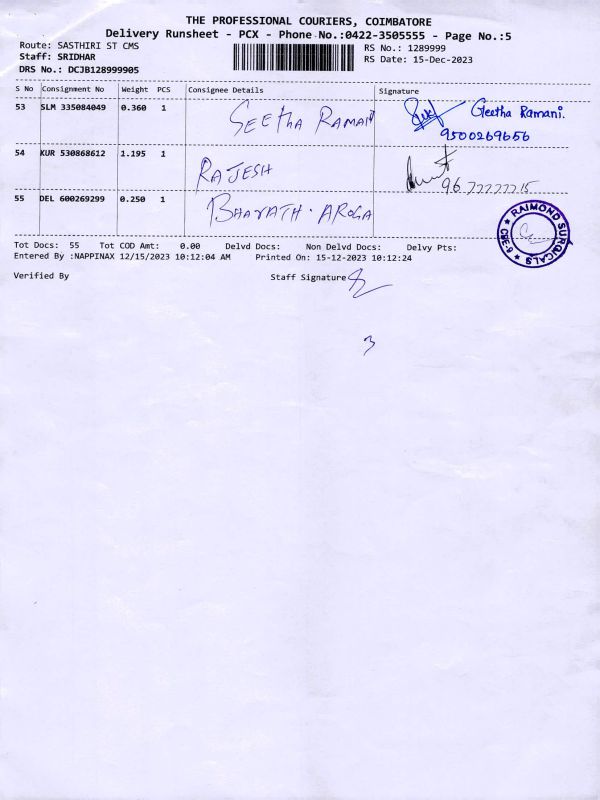 THE PROFESSIONAL COURIERS, COIMBATORE
Delivery Runsheet - PCX - Phone No.:0422-3505555 - Page No.:5
Route: SASTHIRI ST CMS
RS No.: 1289999
Staff: SRIDHAR
RS Date: 15-Dec-2023
DRS No.: DCJB128999905
S No Consignment No Weight PCS Consignee Details Signature
53 SLM 335084049 0.360 1 GEEtha RAMANI Geetha Ramani.
9500269656
54 KUR 530868612 1.195 1 RAJESH
55 DEL 600269299 0.250 1 BHARATH. AROGA
RAIMOND SURGICALS ★ CBE-9 ★
Tot Docs: 55 Tot COD Amt: 0.00 Delvd Docs: Non Delvd Docs: Delvy Pts:
Entered By :NAPPINAX 12/15/2023 10:12:04 AM Printed On: 15-12-2023 10:12:24
Verified By Staff Signature
3